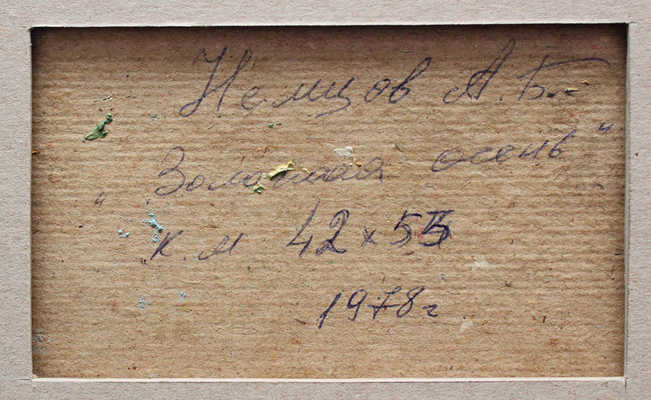 Немцов А.Б.
"Золотая осень"
к.м 42х55
1978г